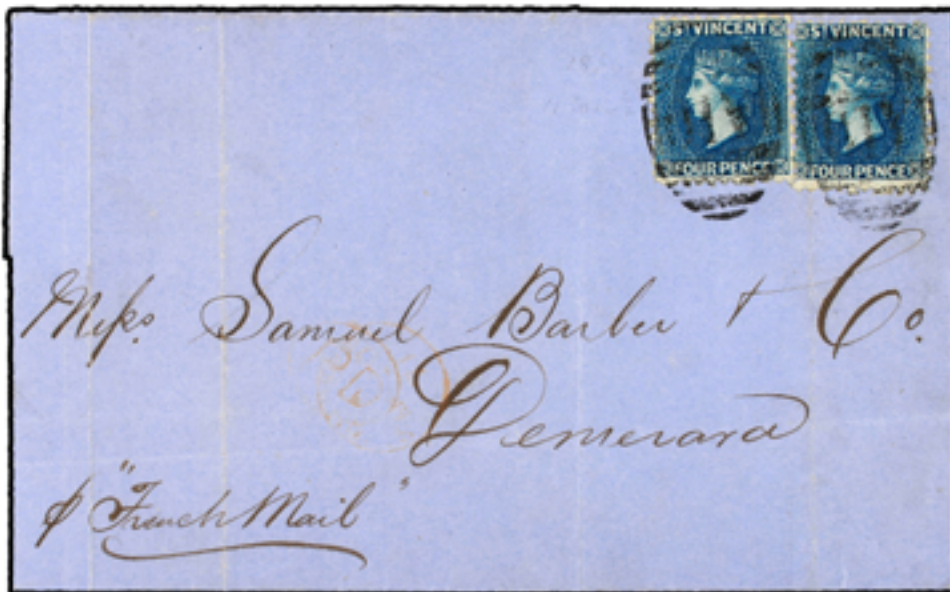 ST VINCENT ST VINCENT
FOUR PENCE FOUR PENCE
Messrs. Samuel Barber + Co.
Demerara
p "French Mail"